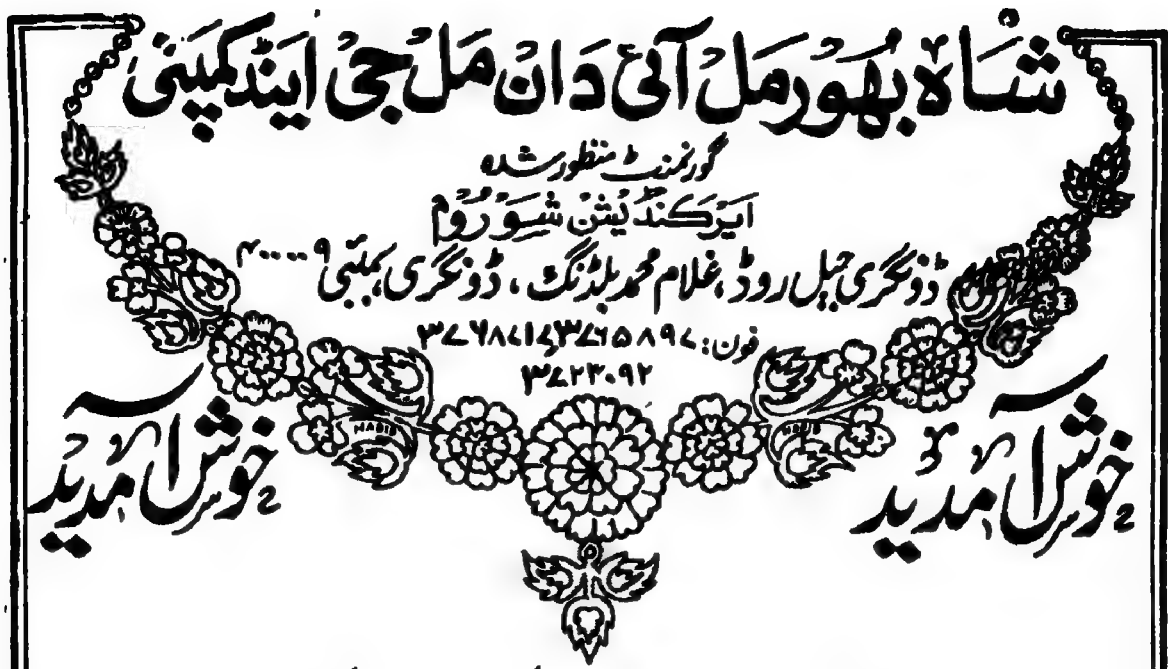 شاہ بھورمل آئی دان مل جی اینڈ کمپنی
گورنمنٹ منظور شدہ
ایرکنڈیشن شیو روم
ڈونگری جیل روڈ، غلام محمد بلڈنگ، ڈونگری، بمبئی ۴۰۰۰۰۹
فون: ۳۷۶۵۸۹۷ و ۳۷۶۸۷۱
۳۷۲۳۰۹۲
خوش آمدید
خوش آمدید
HABIB
HABIB